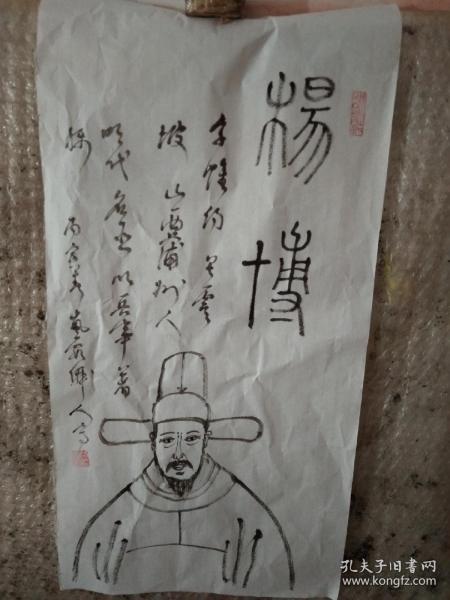 楊博
字惟约 号虞
坡 山西蒲州人
明代名臣 以兵事著
称
丙寅冬 岚
人写
孔夫子旧书网
www.kongfz.com